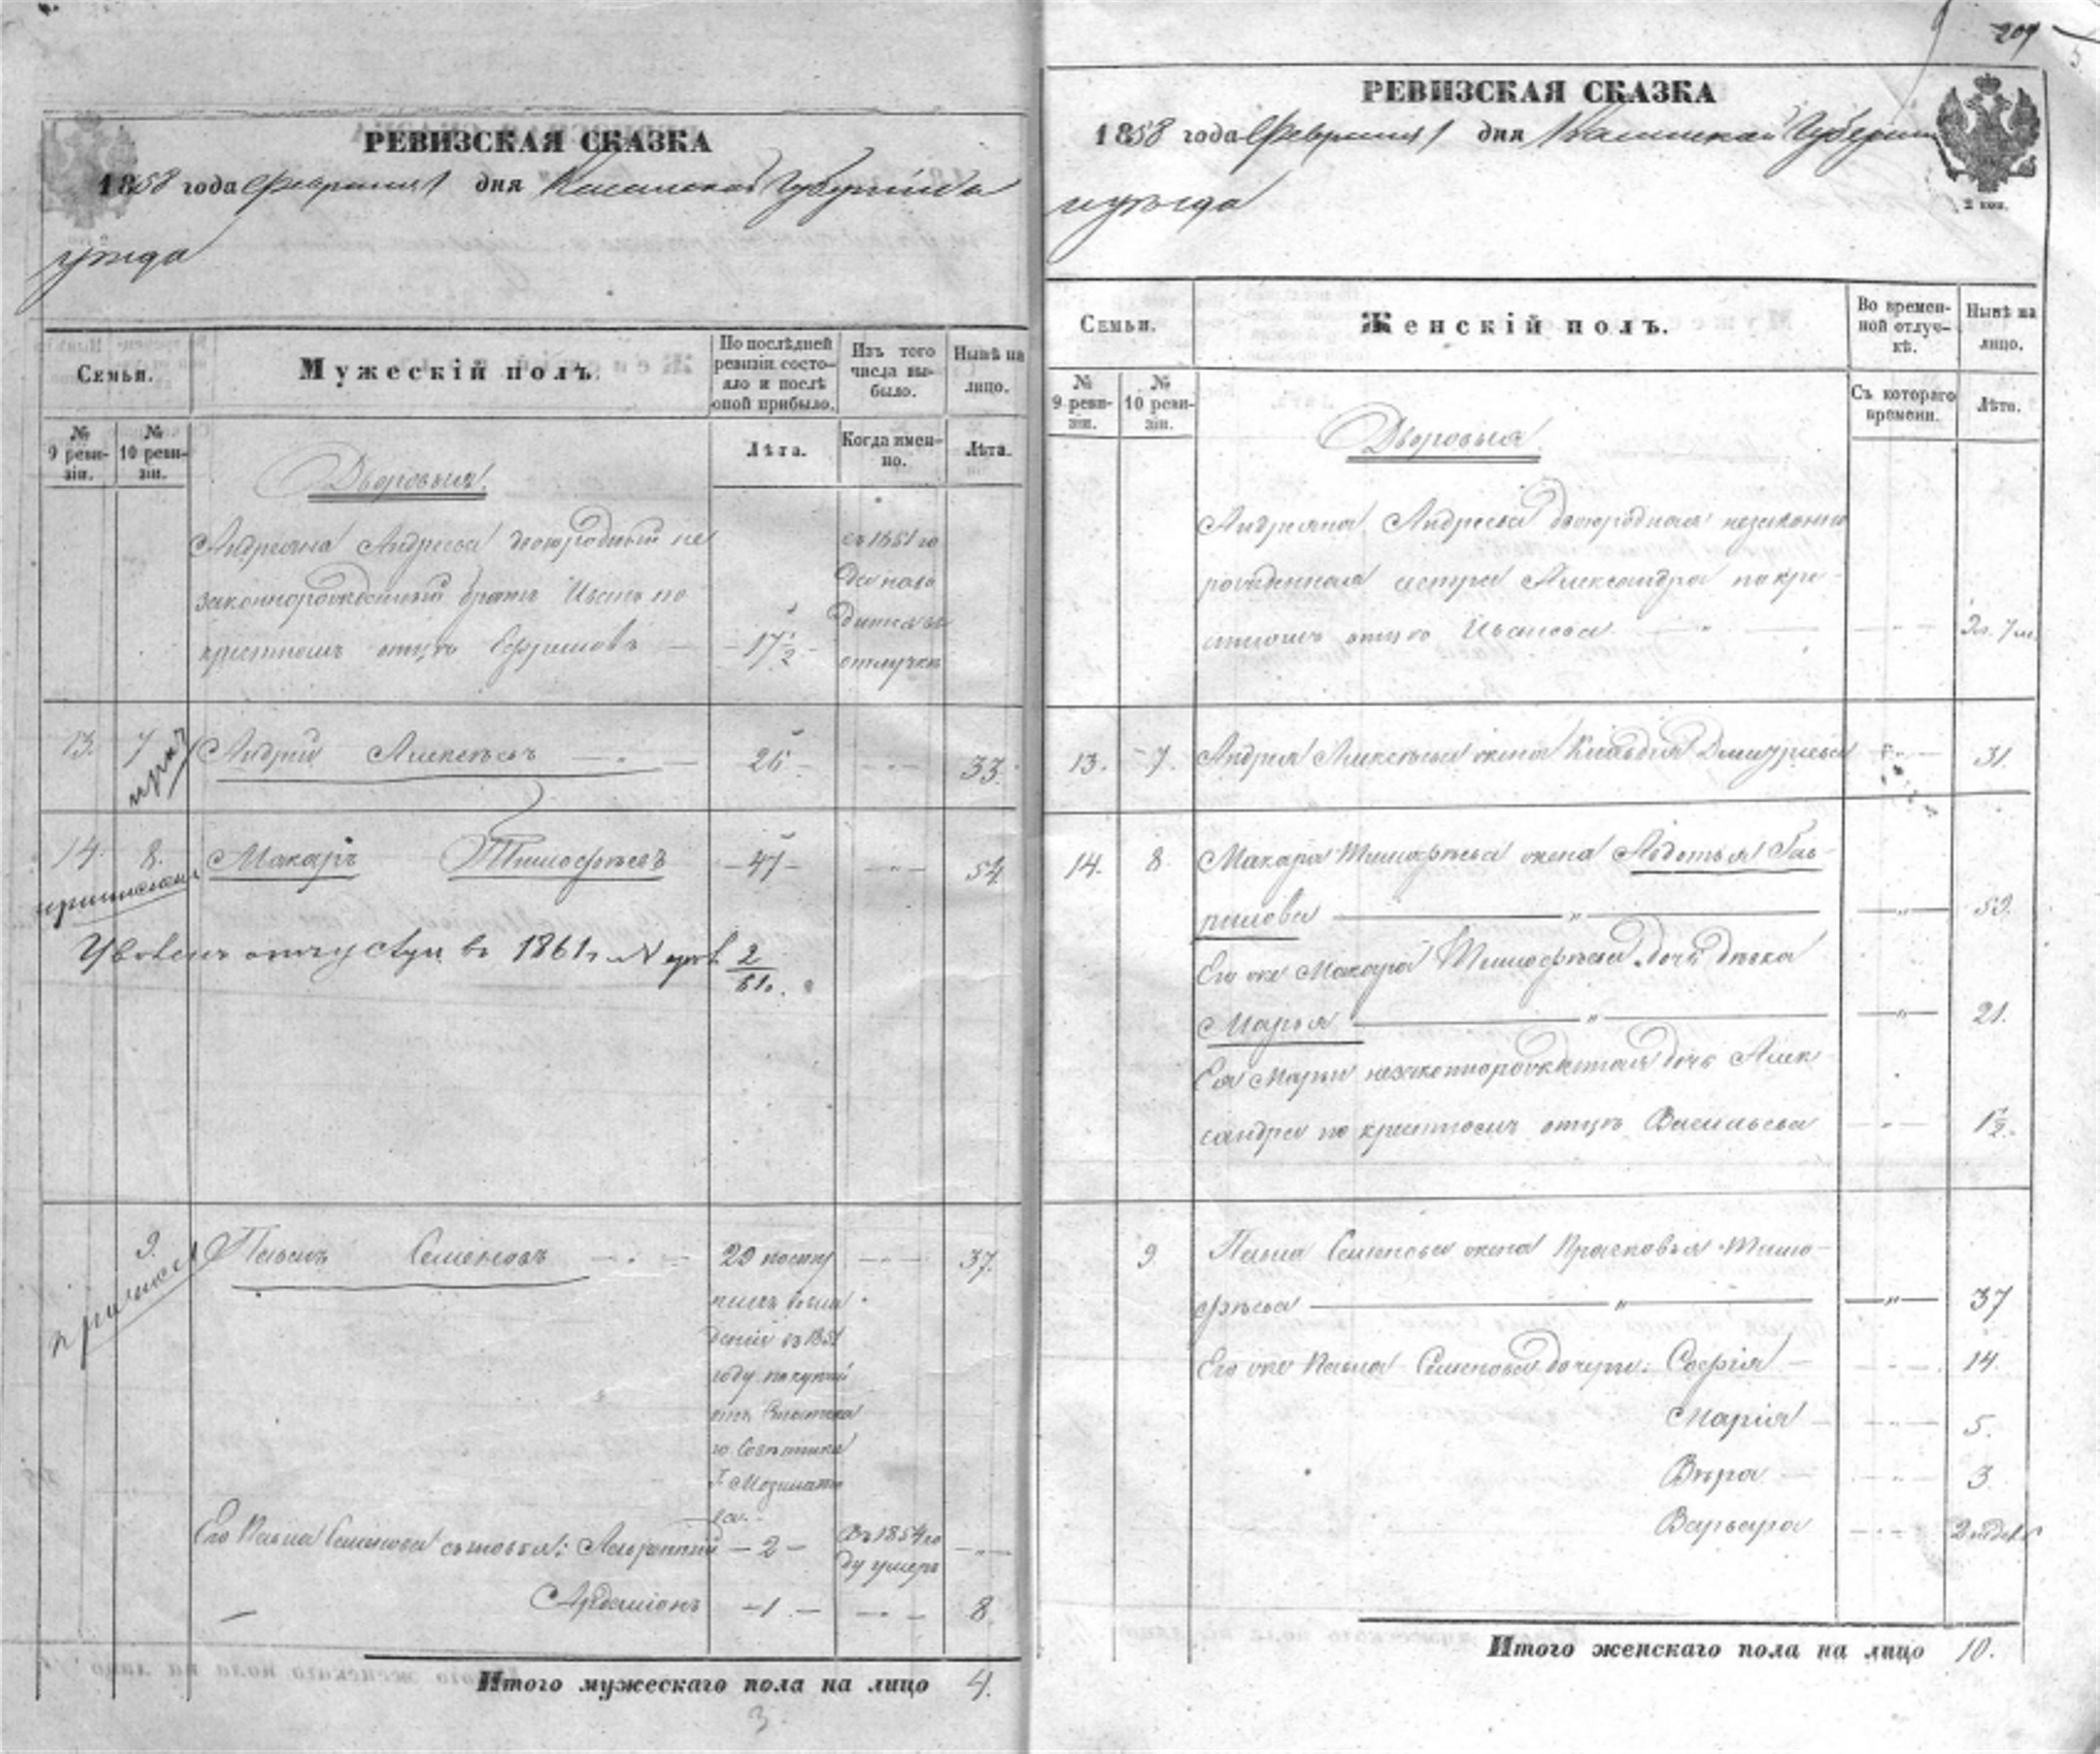 РЕВИЗСКАЯ СКАЗКА
1858 года Февраля 1 дня Казанской Губерніи
уѣзда
Семьи.
Мужескій полъ.
По послѣдней ревизіи состояло и послѣ оной прибыло.
Изъ того числа выбыло.
Нынѣ на лицо.
№ 9 ревизіи.
№ 10 ревизіи.
Лѣта.
Когда именно.
Лѣта.
Дворовыя.
Андреяна Андреева двоюродный не
законнорожденный братъ Иванъ по
крестномъ отцѣ Ефримовъ
17 1/2
съ 1851 го
да нахо
дится въ
отлучкѣ
13. 7 Андрей Алексѣевъ — „ — 26 — „ — 33.
14. 8. Макаръ Тимофѣевъ — 47 — „ — 54
Уволенъ отпускн въ 1861 г. №
2
61
9. Павелъ Семеновъ — „ — 29 посту — „ — 37.
пилъ во вла
деніе въ 1851
году покупкой
отъ
го Совѣтника
Его Павла Семенова сыновья: Лаврентій — 2 — Въ 1854 го
ду умеръ
— 1 — „ — 8.
Итого мужескаго пола на лицо 4.
3
209
РЕВИЗСКАЯ СКАЗКА
1858 года Февраля 1 дня Казанской Губерніи
уѣзда
2 коп.
Семьи.
Женскій полъ.
Во временной отлучкѣ.
Нынѣ на лицо.
№ 9 ревизіи.
№ 10 ревизіи.
Съ котораго времени.
Лѣта.
Дворовыя
Андреяна Андреева двоюродная незаконно
рожденная сестра Александра по кре-
стномъ отцѣ Иванова — „ — 7 м.
13. 7. Андрея Алексѣева жена Клавдія Дмитріева — „ — 31.
14. 8 Макара Тимофѣева жена Авдотья Гав-
рилова — „ — 53.
Его же Макара Тимофѣева дочь дѣвка
Марья — „ — 21.
Ея Марьи незаконнорожденная дочь Алек
сандра по крестномъ отцѣ Васильева — „ — 1 1/2.
9 Павла Семенова жена Прасковья Тимо-
фѣева — „ — 37
Его же Павла Семенова дочери: Софія — „ — 14.
Марія — „ — 5.
Вѣра — „ — 3
Варвара — „ — 2
Итого женскаго пола на лицо 10.